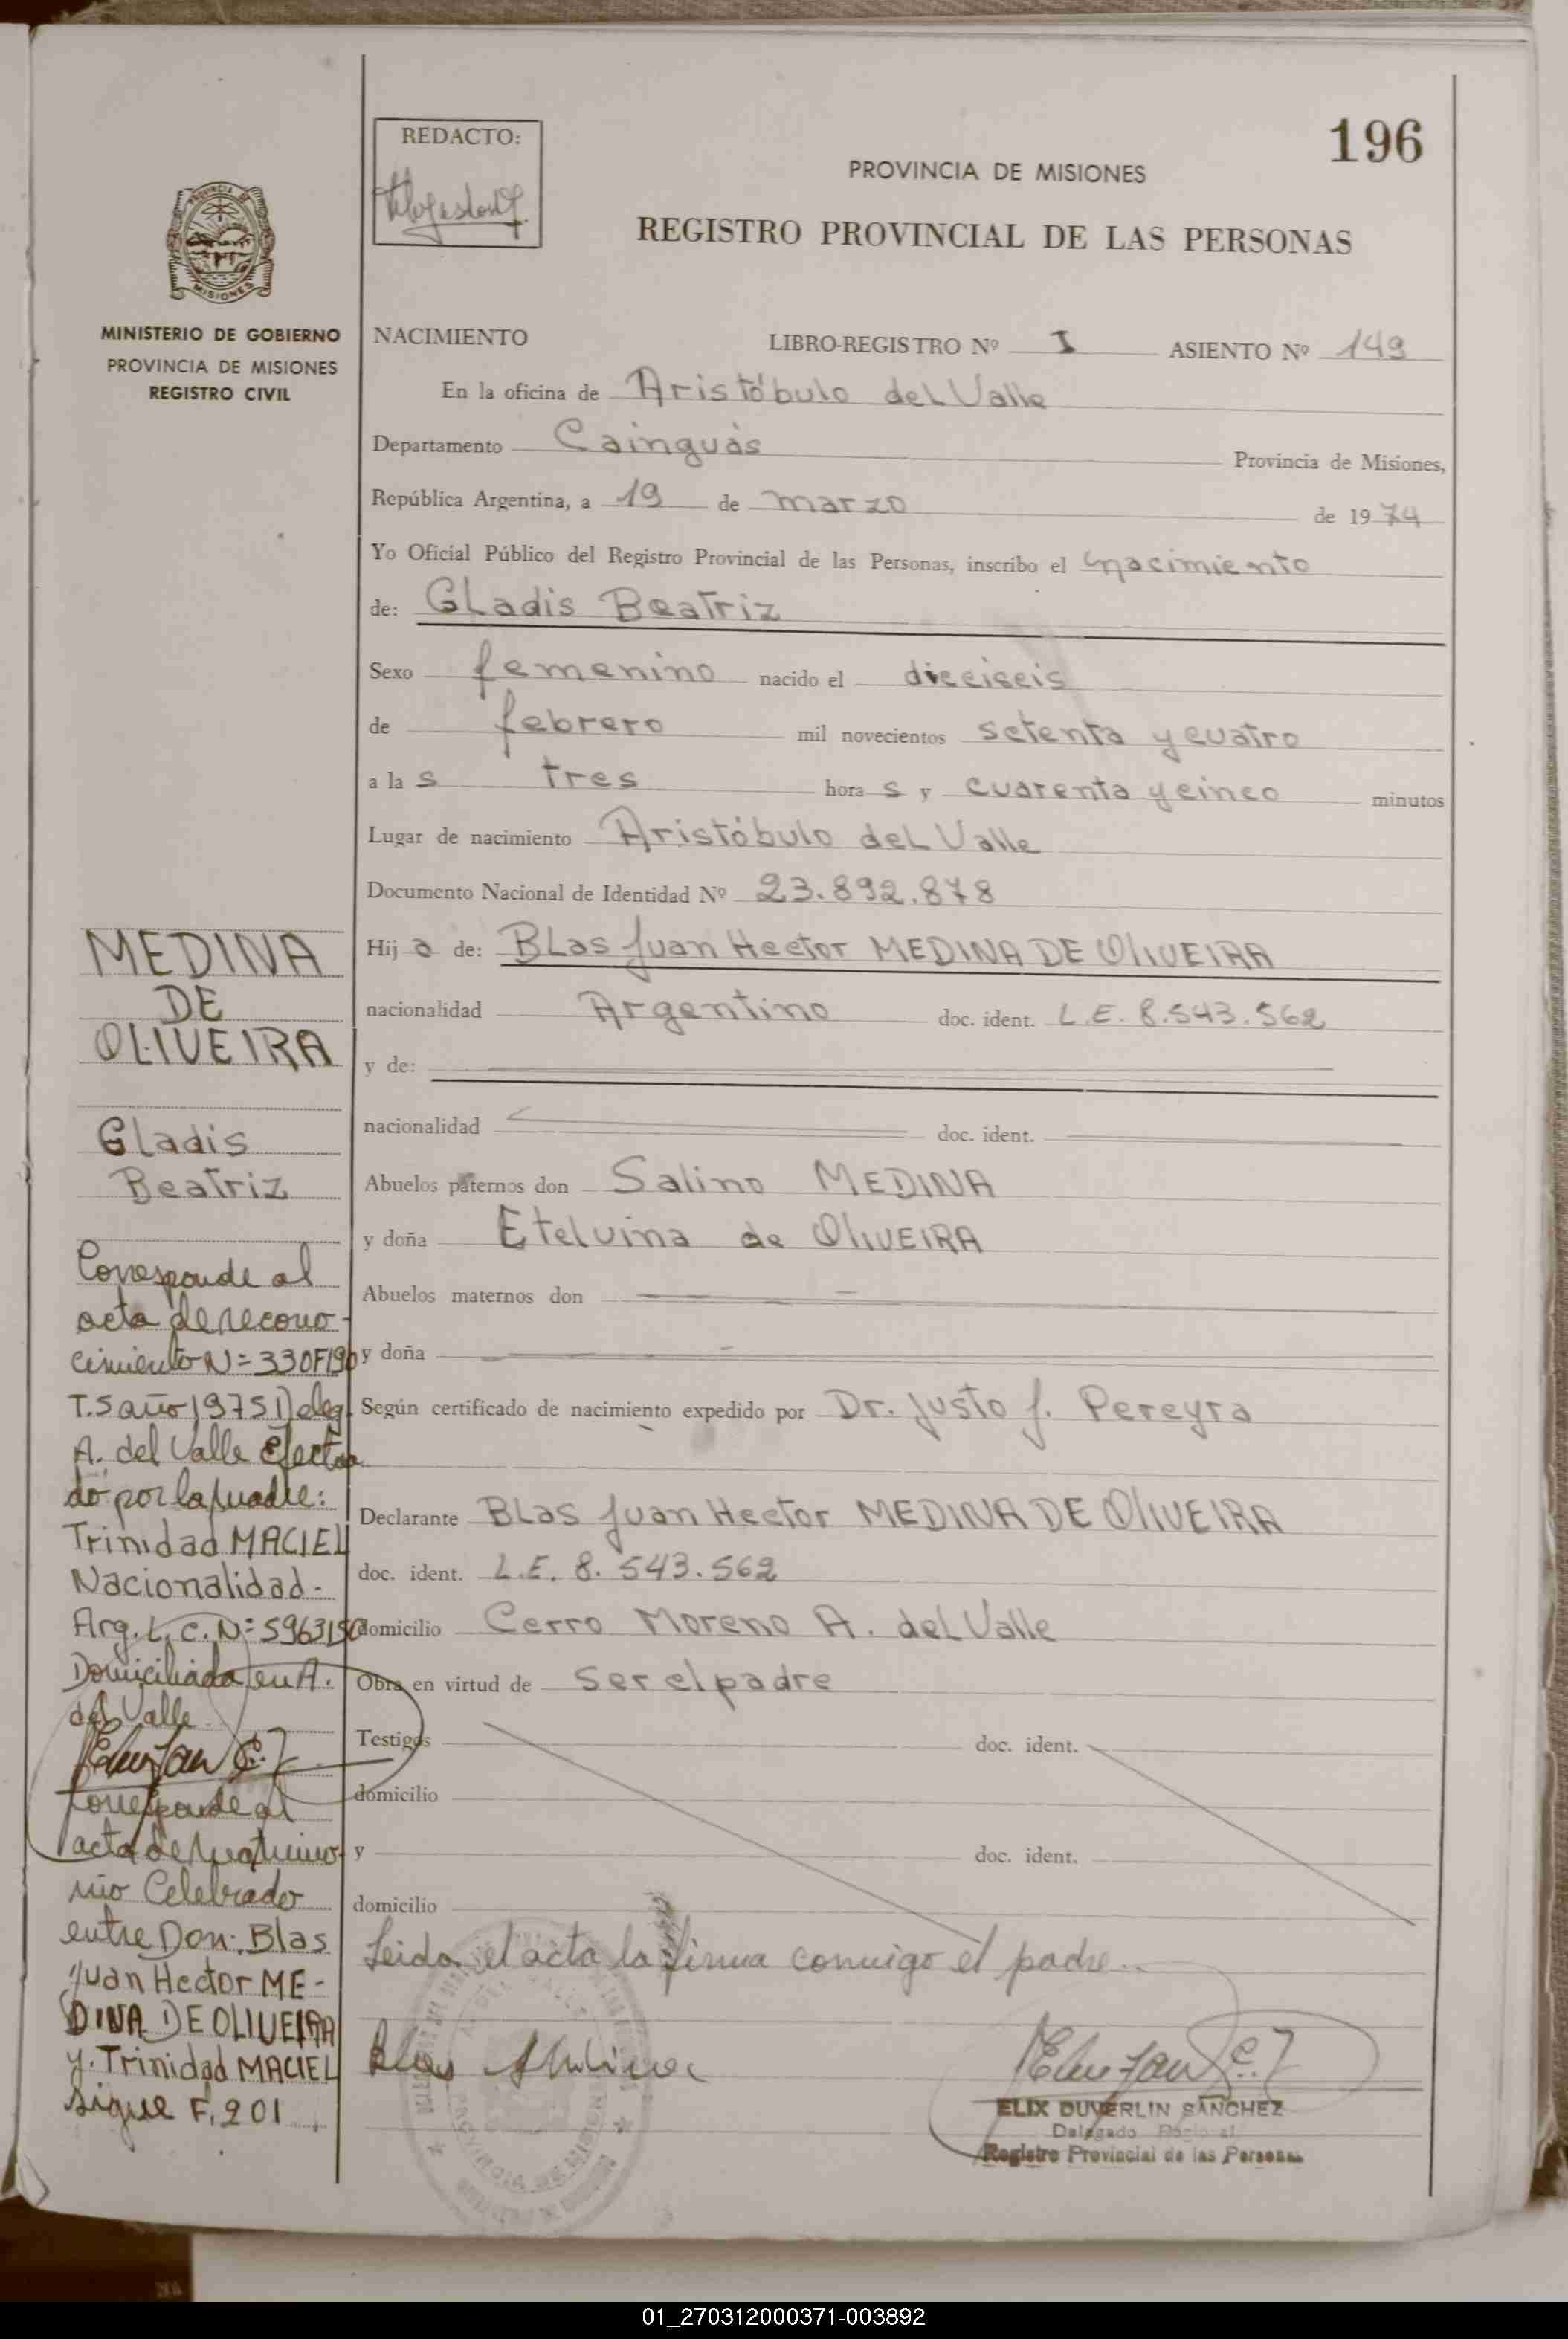 196
REDACTO:
PROVINCIA DE MISIONES
REGISTRO PROVINCIAL DE LAS PERSONAS
MISIONES
MINISTERIO DE GOBIERNO
PROVINCIA DE MISIONES
REGISTRO CIVIL
NACIMIENTO LIBRO-REGISTRO Nº I ASIENTO Nº 149
En la oficina de Aristóbulo del Valle
Departamento Cainguás Provincia de Misiones,
República Argentina, a 19 de marzo de 1974
Yo Oficial Público del Registro Provincial de las Personas, inscribo el nacimiento
de: Gladis Beatriz
Sexo femenino nacido el dieciseis
de febrero mil novecientos setenta y cuatro
a la s tres hora s y cuarenta y cinco minutos
Lugar de nacimiento Aristóbulo del Valle
Documento Nacional de Identidad Nº 23.892.878
Hij a de: Blas Juan Hector MEDINA DE OLIVEIRA
nacionalidad Argentino doc. ident. L.E. 8.543.562
y de:
nacionalidad doc. ident.
Abuelos paternos don Salino MEDINA
y doña Etelvina de OLIVEIRA
Abuelos maternos don
y doña
Según certificado de nacimiento expedido por Dr. Justo J. Pereyra
Declarante Blas Juan Hector MEDINA DE OLIVEIRA
doc. ident. L.E. 8.543.562
domicilio Cerro Moreno A. del Valle
Obra en virtud de ser el padre
Testigos doc. ident.
domicilio
y doc. ident.
domicilio
Leida el acta la firma conmigo el padre..
Blas Medina
ELIX DUVERLIN SANCHEZ
Delegado
Registro Provincial de las Personas
MEDINA
DE
OLIVEIRA
Gladis
Beatriz
Corresponde al
acta de recono-
cimiento N= 330F190
T.5 año 1975 Deleg.
A. del Valle Efectua
do por la madre:
Trinidad MACIEL
Nacionalidad-
Arg. L.C.N: 5963150
Domiciliada en A.
del Valle
Corresponde al
acta de matrimo
nio Celebrado
entre Don: Blas
Juan Hector ME-
DINA DE OLIVEIRA
y. Trinidad MACIEL
sigue F. 201
01_270312000371-003892